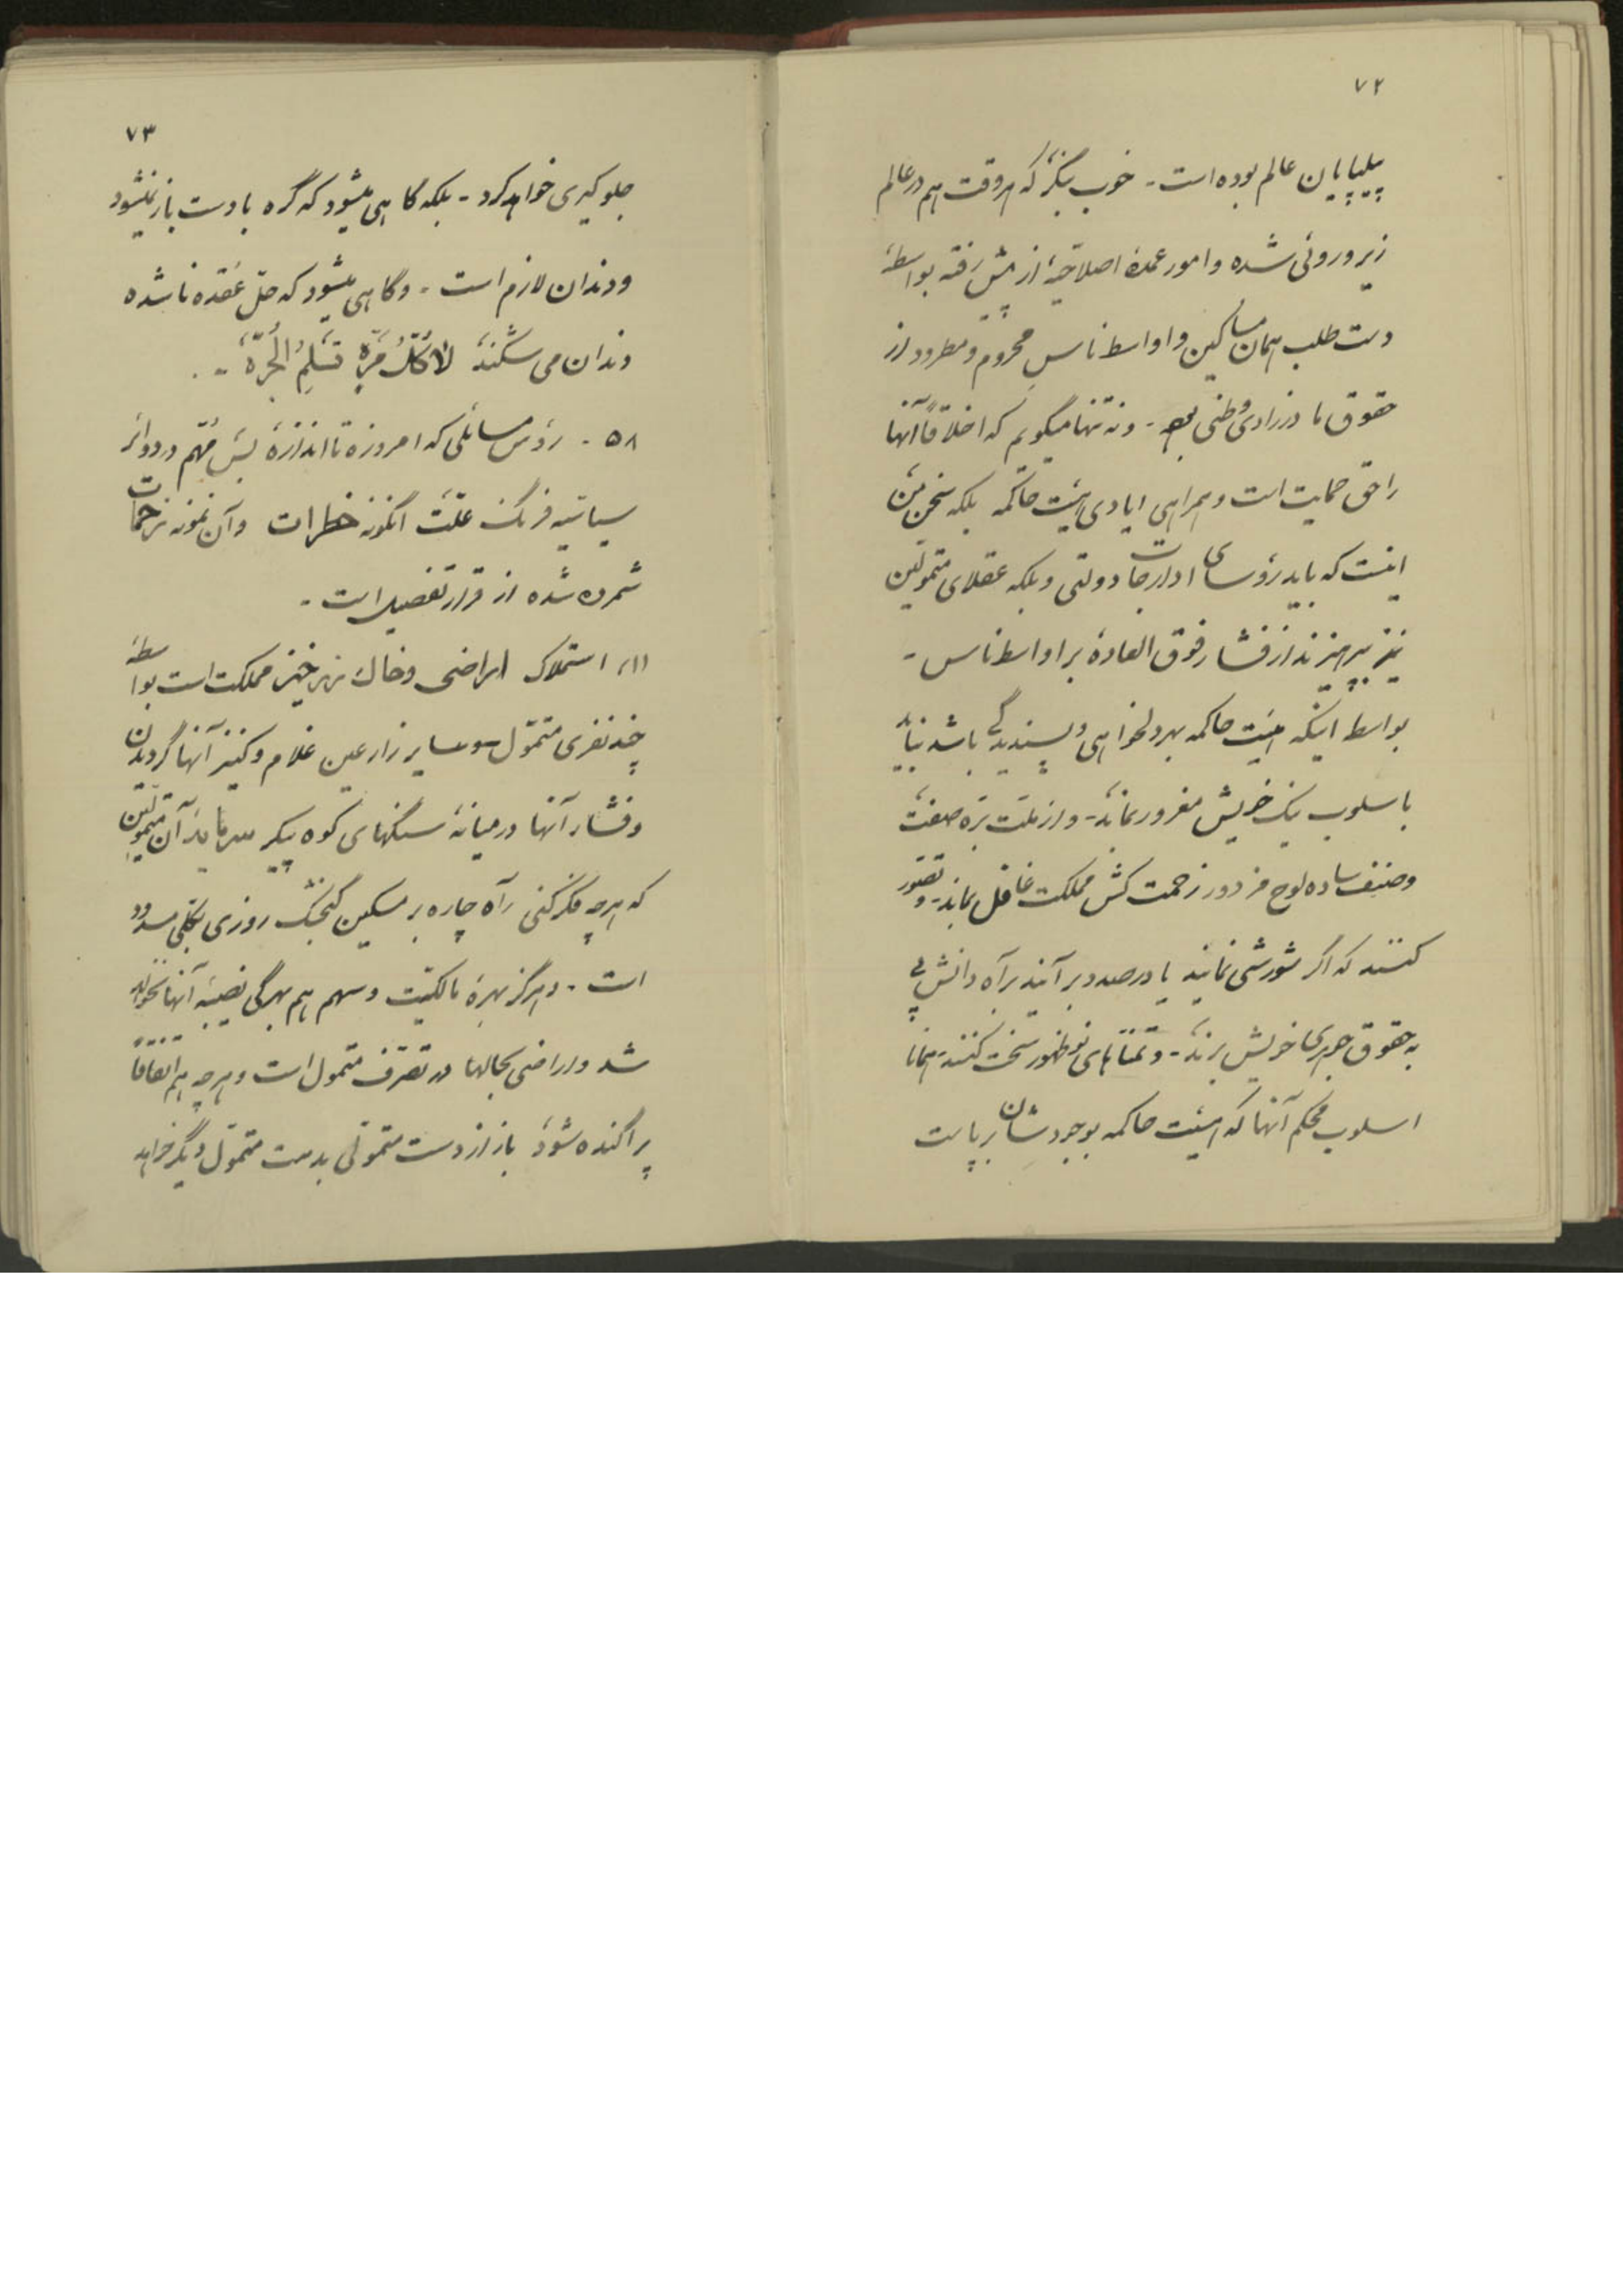 ۷۲
پیلپایان عالم بوده است - خوب بنگر که هر وقت هم در عالم
زیر و روئی شده و امور عمدهٔ اصلاحیّهٔ از پیش رفته بواسطهٔ
دست طلب همان مساکین و اواسط ناس محروم و مطرود از
حقوق مادرزادی وطنی - و نه تنها میگویم که اخلاقاً آنها
را حق حمایت است و همراهی ایادی هیئت حاکمه بلکه سخن من
اینست که باید رؤسای ادارجات دولتی و بلکه عقلای متمولین
نیز بپرهیزند از فشار فوق العادهٔ بر اواسط ناس -
بواسط اینکه هیئت حاکمه بهر دلخواهی و پسندیدگی باشد نباید
باسلوب نیک خویش مغرور بماند - و از ملت بره صفت
و صنف ساده لوح مزدور زحمت کش مملکت غافل بماند - و تصور
کنند که اگر شورشی نمایند یا درصدد بر آیند براه دانش پی
به حقوق جوهری خویش برند - و تمناهای نوظهور سخت کنند همانا
اسلوب محکم آنها که هیئت حاکمه بوجودشان برپاست
۷۳
جلوگیری خواهد کرد - بلکه گاهی میشود که گره بادست باز نمیشود
و دندان لازم است - و گاهی میشود که حلّ عُقده ناشده
دندان می شکند لا کُلُّ مَرّةٍ تَسلِمُ الجَرّة -
۵۸ - رؤس مسائلی که امروزه تا اندازهٔ بس مهّم در دوائر
سیاسیه فرنگ علّت اینگونه خطرات و آن نمونه زحمات
شمرده شده از قرار تفصیل است -
(۱) استملاک اراضی و خاک زرخیز مملکت است بواسطهٔ
چند نفری متموّل و سایر زارعین غلام و کنیز آنها گردیدن
و فشار آنها در میانهٔ سنگهای کوه پیکر سرمایهٔ آن متموّلین
که هرچه فکر کنی راه چاره بر مسکین گنجشک روزی بکلی مسدود
است - و هرگز بهرهٔ مالکیّت و سهم هم بهرگی نصیبهٔ آنها نخواهد
شد و اراضی بحالها در تصرّف متمول است و هرچه هم اتفاقاً
پراکنده شود باز از دست متموّلی بدست متموّل دیگر خواهد